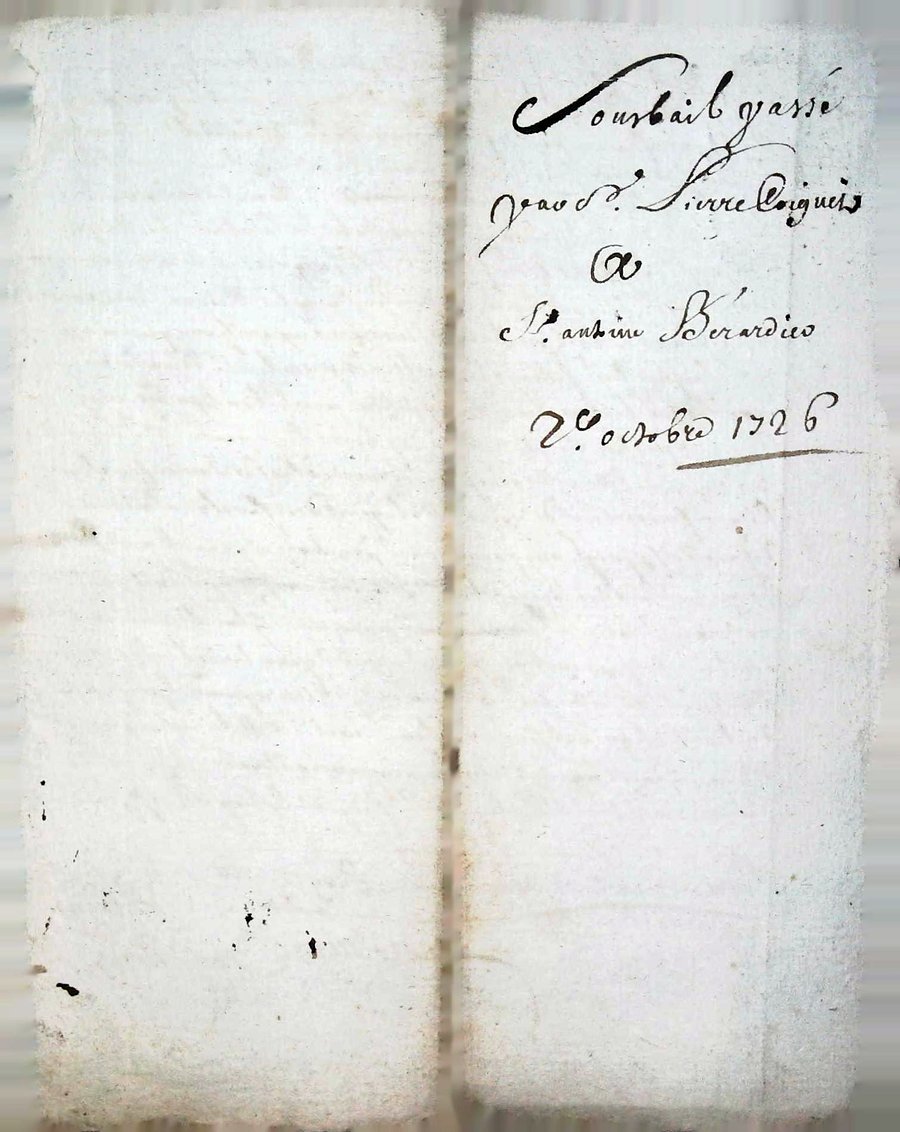 Sousbail passé
par Sr. Pierre Coignet
&
St. antoine Bérardier
2e. octobre 1726